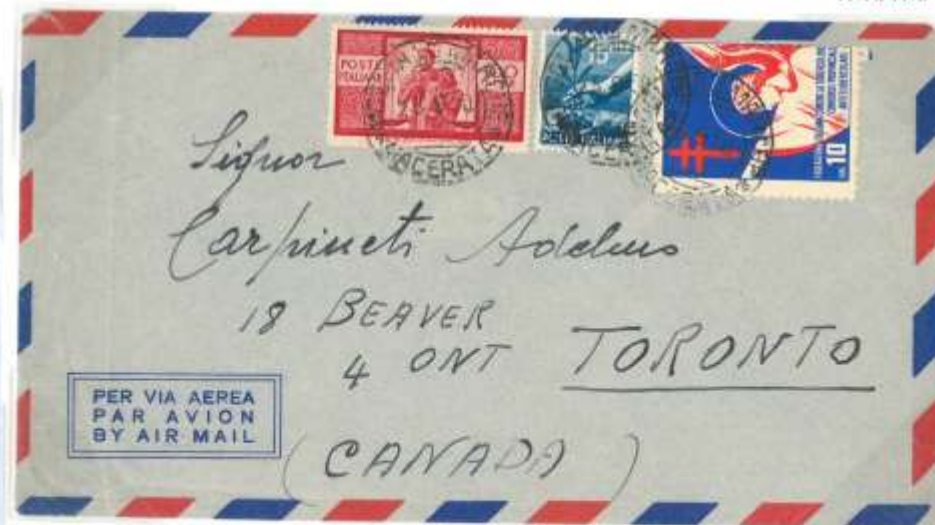 POSTE
ITALIANE
15
MACERATA
10
Signor
Carpineti Adelmo
18 BEAVER
4 ONT TORONTO
PER VIA AEREA
PAR AVION
BY AIR MAIL
(CANADA)